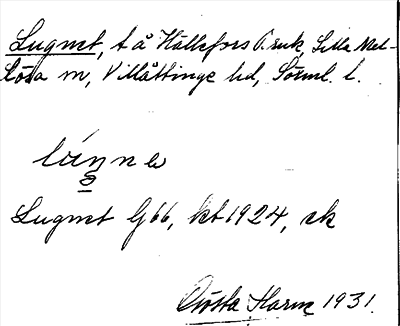 Lugnet, t å Hällefors bruk, Lilla Mel-
lösa sn, Villåttinge hd, Sörml. l.
Lugnet G66, kt 1924, ek
Gösta Harm 1931.